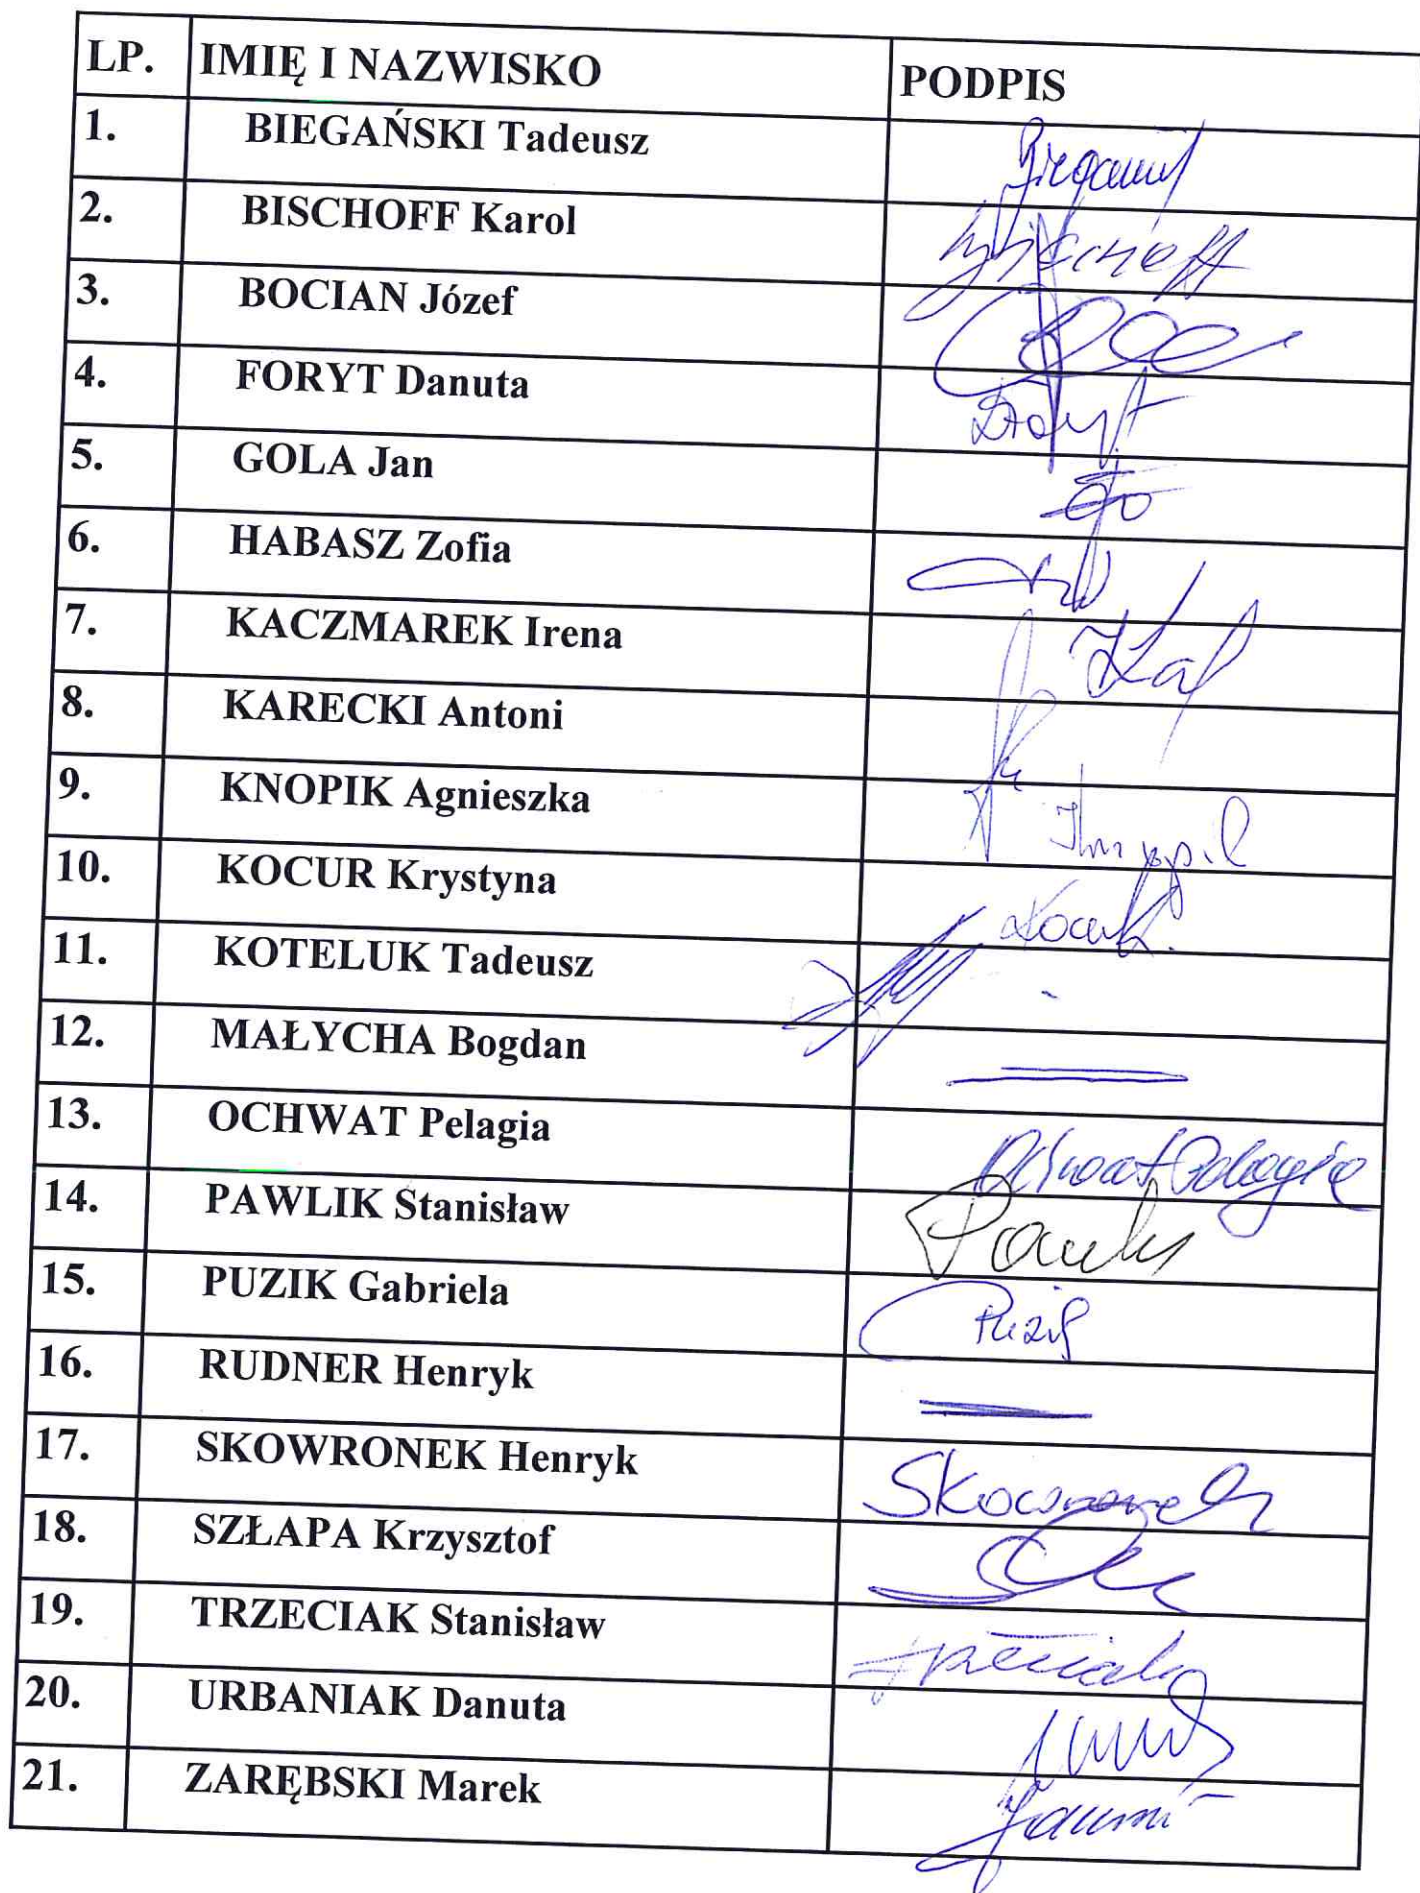 LP. IMIĘ I NAZWISKO PODPIS
1. BIEGAŃSKI Tadeusz
2. BISCHOFF Karol Bischoff
3. BOCIAN Józef
4. FORYT Danuta DForyt
5. GOLA Jan
6. HABASZ Zofia
7. KACZMAREK Irena
8. KARECKI Antoni
9. KNOPIK Agnieszka
10. KOCUR Krystyna
11. KOTELUK Tadeusz
12. MAŁYCHA Bogdan
13. OCHWAT Pelagia Ochwat Pelagia
14. PAWLIK Stanisław
15. PUZIK Gabriela Puzik
16. RUDNER Henryk
17. SKOWRONEK Henryk Skowronek
18. SZŁAPA Krzysztof
19. TRZECIAK Stanisław Trzeciak
20. URBANIAK Danuta
21. ZARĘBSKI Marek